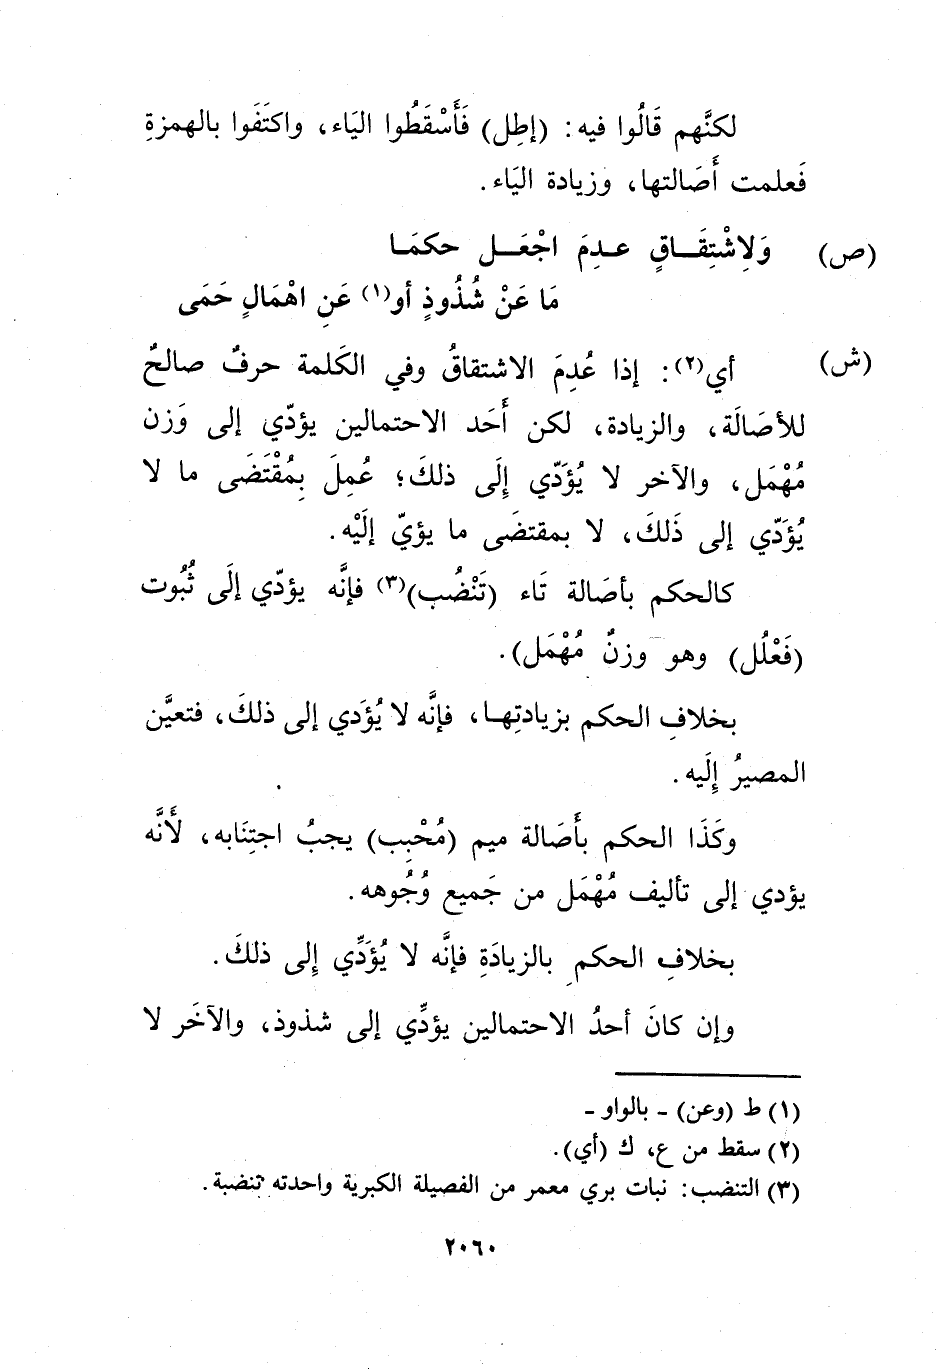 لكنَّهم قَالُوا فيه: (إطِل) فَأَسْقَطُوا اليَاء، واكتَفَوا بالهمزةِ
فَعلمت أَصَالتها، وزيادة اليَاء.
(ص) وَلِاشْتِقَــاقٍ عــدِمَ اجْعَــل حكمَــا
مَا عَنْ شُذُوذٍ أو(١) عَنِ اهْمَالٍ حَمَى
(ش) أي(٢): إذا عُدِمَ الاشتقاقُ وفي الكَلمة حرفٌ صالحٌ
للأصَالَة، والزيادة، لكن أَحَد الاحتمالين يؤدّي إلى وَزن
مُهْمَل، والآخر لا يُؤَدّي إِلَى ذلكَ؛ عُمِلَ بِمُقْتَضَى ما لا
يُؤَدّي إلى ذَلكَ، لا بمقتضَى ما يؤيّ إلَيْه.
كالحكم بأصَالة تَاء (تَنْضُب)(٣) فإنَّه يؤدّي إلَى ثُبُوت
(فَعْلُل) وهو وزنٌ مُهْمَل).
بخلافِ الحكم بزيادتِهـا، فإنَّه لا يُؤَدي إلى ذلكَ، فتعيَّن
المصيرُ إِلَيه.
وكَذَا الحكم بأَصَالة ميم (مُحْبِب) يجبُ اجتِنَابه، لأَنَّه
يؤدي إلى تأليف مُهْمَل من جَميع وُجُوهه.
بخلافِ الحكم بالزيادَةِ فإنَّه لا يُؤَدِّي إِلى ذلكَ.
وإن كانَ أحدُ الاحتمالين يؤدِّي إلى شذوذ، والآخَر لا
(١) ط (وعن) - بالواو -
(٢) سقط من ع، ك (أي).
(٣) التنضب: نبات بري معمر من الفصيلة الكبرية واحدته تنضبة.
٢٠٦٠